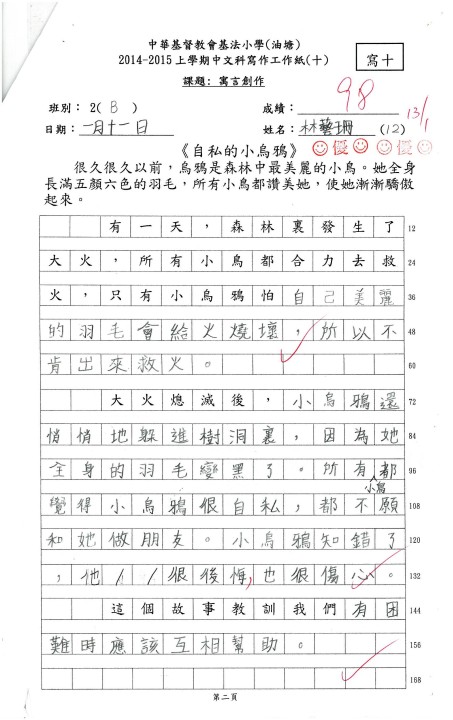 中華基督教會基法小學(油塘)
2014-2015上學期中文科寫作工作紙(十)
寫十
課題：寓言創作
98
13/1
班別：2( B ) 成績：
日期：一月十一日 姓名：林藝珊 (12)
《自私的小烏鴉》 優 優
很久很久以前，烏鴉是森林中最美麗的小鳥。她全身
長滿五顏六色的羽毛，所有小鳥都讚美她，使她漸漸驕傲
起來。
有一天，森林裏發生了 12
大火，所有小鳥都合力去救 24
火，只有小烏鴉怕自己美麗 36
的羽毛會給火燒壞，所以不 48
肯出來救火。 60
大火熄滅後，小烏鴉還 72
悄悄地躲進樹洞裏，因為她 84
全身的羽毛變黑了。所有都 96
小鳥
覺得小烏鴉很自私，都不願 108
和她做朋友。小烏鴉知錯了 120
，他很後悔，也很傷心。 132
這個故事教訓我們有困 144
難時應該互相幫助。 156
168
第二頁